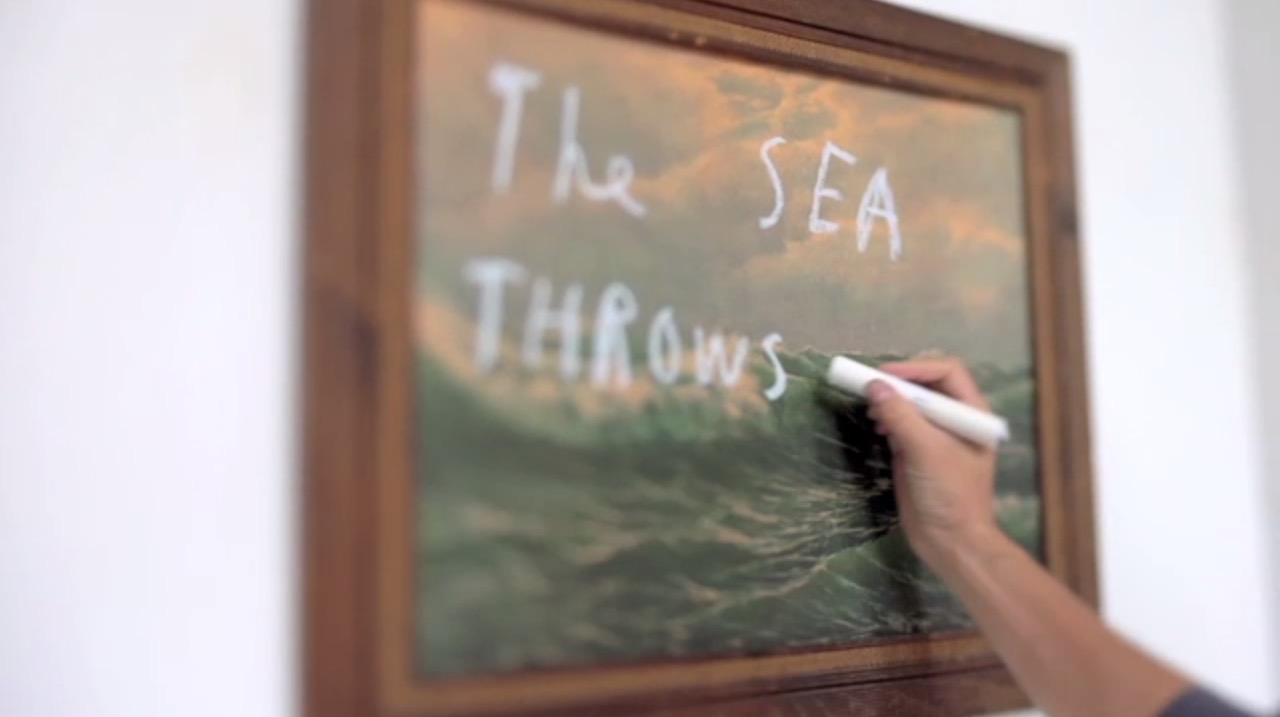 The SEA
THROWS